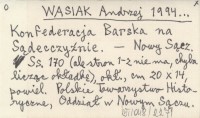 WASIAK Andrzej 1994...
Konfederacja Barska na
Sądecczyźnie. — Nowy Sącz.
Ss, 170 (ale stron 1-2 nie ma, chyba
licząc okładkę), okł., cm 20 x 14,
powiel. Polskie Towarzystwo Histo-
ryczne, Oddział w Nowym Sączu.